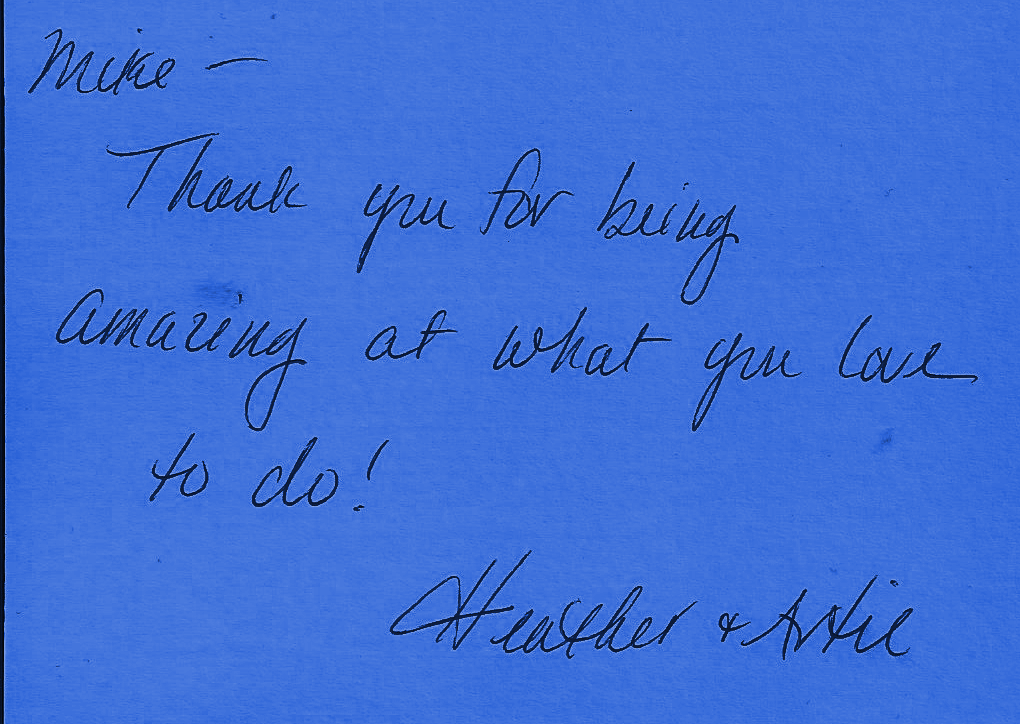 Mike —
Thank you for being
amazing at what you love
to do!
Heather & Artie